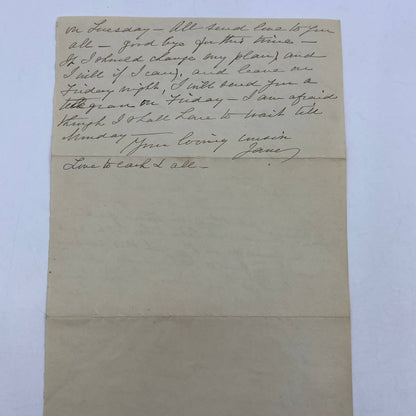 on Tuesday – All send love to you
all – good bye for this time –
If I should change my plan, and
I will if I can, and leave on
Friday night, I will send you a
telegram on Friday – I am afraid
though I shall have to wait till
Monday –
Your loving cousin
Jane
Love to each & all –